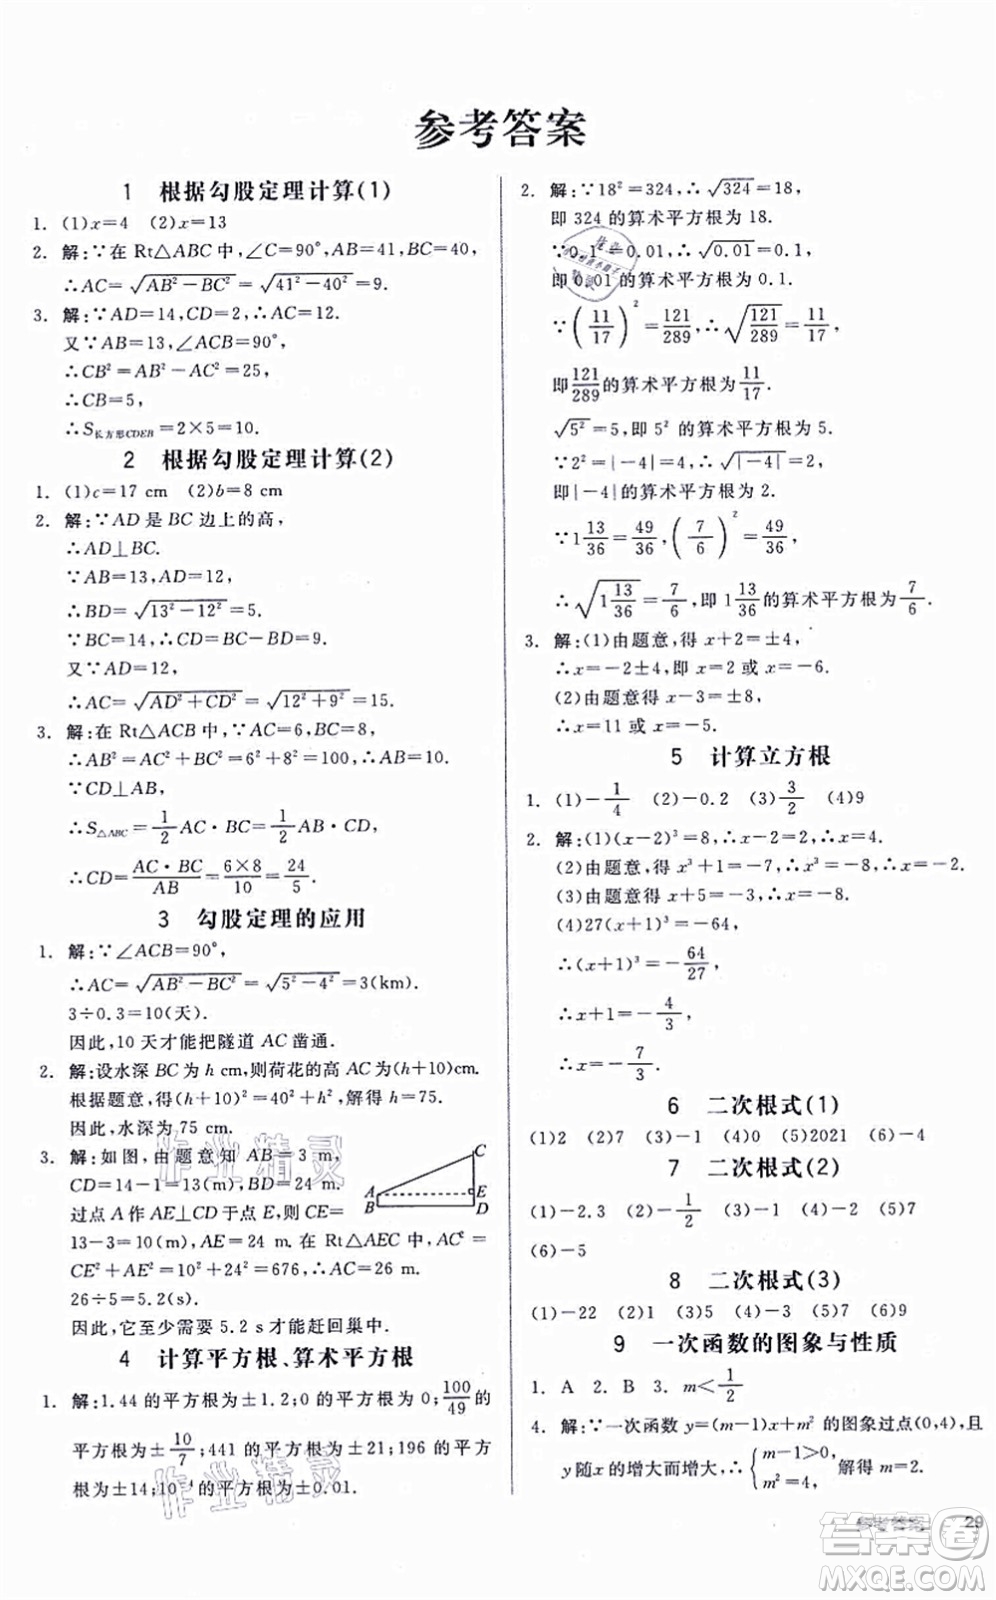 参考答案
1 根据勾股定理计算(1)
1. (1)x=4 (2)x=13
2. 解:∵在 Rt△ABC 中,∠C=90°,AB=41,BC=40,
∴AC=√(AB²-BC²)=√(41²-40²)=9.
3. 解:∵AD=14,CD=2,∴AC=12.
又∵AB=13,∠ACB=90°,
∴CB²=AB²-AC²=25,
∴CB=5,
∴S长方形CDEB=2×5=10.
2 根据勾股定理计算(2)
1. (1)c=17 cm (2)b=8 cm
2. 解:∵AD 是 BC 边上的高,
∴AD⊥BC.
∵AB=13,AD=12,
∴BD=√(13²-12²)=5.
∵BC=14,∴CD=BC-BD=9.
又∵AD=12,
∴AC=√(AD²+CD²)=√(12²+9²)=15.
3. 解:在 Rt△ACB 中,∵AC=6,BC=8,
∴AB²=AC²+BC²=6²+8²=10².∴AB=10.
∵CD⊥AB,
∴S△ABC=1/2 AC·BC=1/2 AB·CD,
∴CD=AC·BC/AB=6×8/10=24/5.
3 勾股定理的应用
1. 解:∵∠ACB=90°,
∴AC=√(AB²-BC²)=√(5²-4²)=3(km).
3÷0.3=10(天).
因此,10 天才能把隧道 AC 凿通.
2. 解:设水深 BC 为 h cm,则荷花的高为(h+10) cm.
根据题意,得(h+10)²=40²+h²,解得 h=75.
因此,水深为 75 cm.
3. 解:如图,由题意知 AB=3 m,
CD=14-1=13(m),BD=24 m.
过点 A 作 AE⊥CD 于点 E,则 CE=
13-3=10(m),AE=24 m. 在 Rt△AEC 中,AC²=
CE²+AE²=10²+24²=676,∴AC=26 m.
26÷5=5.2(s).
因此,它至少需要 5.2 s 才能赶回巢中.
A B C E D
4 计算平方根、算术平方根
1. 解:1.44 的平方根为±1.2;0 的平方根为 0;100/49 的
平方根为±10/7;441 的平方根为±21;196 的平方根
为±14;10⁻⁴ 的平方根为±0.01.
2. 解:∵18²=324,∴√324=18,
即 324 的算术平方根为 18.
∵0.1²=0.01,∴√0.01=0.1,
即 0.01 的算术平方根为 0.1.
∵(11/17)²=121/289,∴√(121/289)=11/17,
即 121/289 的算术平方根为 11/17.
√(5²)=5,即 5² 的算术平方根为 5.
∵2²=|-4|,∴√|-4|=2,
即|-4|的算术平方根为 2.
∵1 13/36=49/36,(7/6)²=49/36,
∴√(1 13/36)=7/6,即 1 13/36 的算术平方根为 7/6.
3. 解:(1)由题意,得 x+2=±4,
∴x=-2±4,即 x=2 或 x=-6.
(2)由题意得 x-3=±8,
∴x=11 或 x=-5.
5 计算立方根
1. (1)-1/4 (2)-0.2 (3)3/2 (4)9
2. 解:(1)(x-2)³=8,∴x-2=2,∴x=4.
(2)由题意,得 x³+1=-7,∴x³=-8,∴x=-2.
(3)由题意得 x+5=-3,∴x=-8.
(4)27(x+1)³=-64,
∴(x+1)³=-64/27,
∴x+1=-4/3,
∴x=-7/3.
6 二次根式(1)
(1)2 (2)7 (3)-1 (4)0 (5)2021 (6)-4
7 二次根式(2)
(1)-2.3 (2)7 (3)-1/2 (4)2 (5)7
(6)-5
8 二次根式(3)
(1)-22 (2)1 (3)5 (4)-3 (5)7 (6)9
9 一次函数的图象与性质
1. A 2. B 3. m<1/2
4. 解:∵一次函数 y=(m-1)x+m² 的图象过点(0,4),且
y 随 x 的增大而增大,∴{m-1>0, m²=4, 解得 m=2.
参考答案 29
作业精灵
作业精灵
答案圈
MXQE.COM